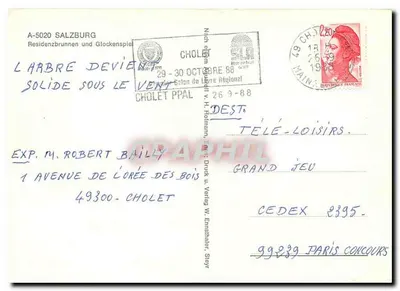 A-5020 SALZBURG
Residenzbrunnen und Glockenspiel
CHOLET
29-30 OCTOBRE 88
Salon du Livre Régional
CHOLET PPAL 26-9-88
49 CH
2,20
L'ARBRE DEVIENT
SOLIDE SOUS LE VENT
DEST.
TÉLÉ-LOISIRS.
GRAND JEU
CEDEX 2395.
99239 PARIS CONCOURS
EXP. M. ROBERT BAILLY
1 AVENUE DE L'ORÉE DES BOIS
49300-CHOLET
Nach einem v. H. Hofmann, Druck u. Verlag W. Ennsthaler, Steyr